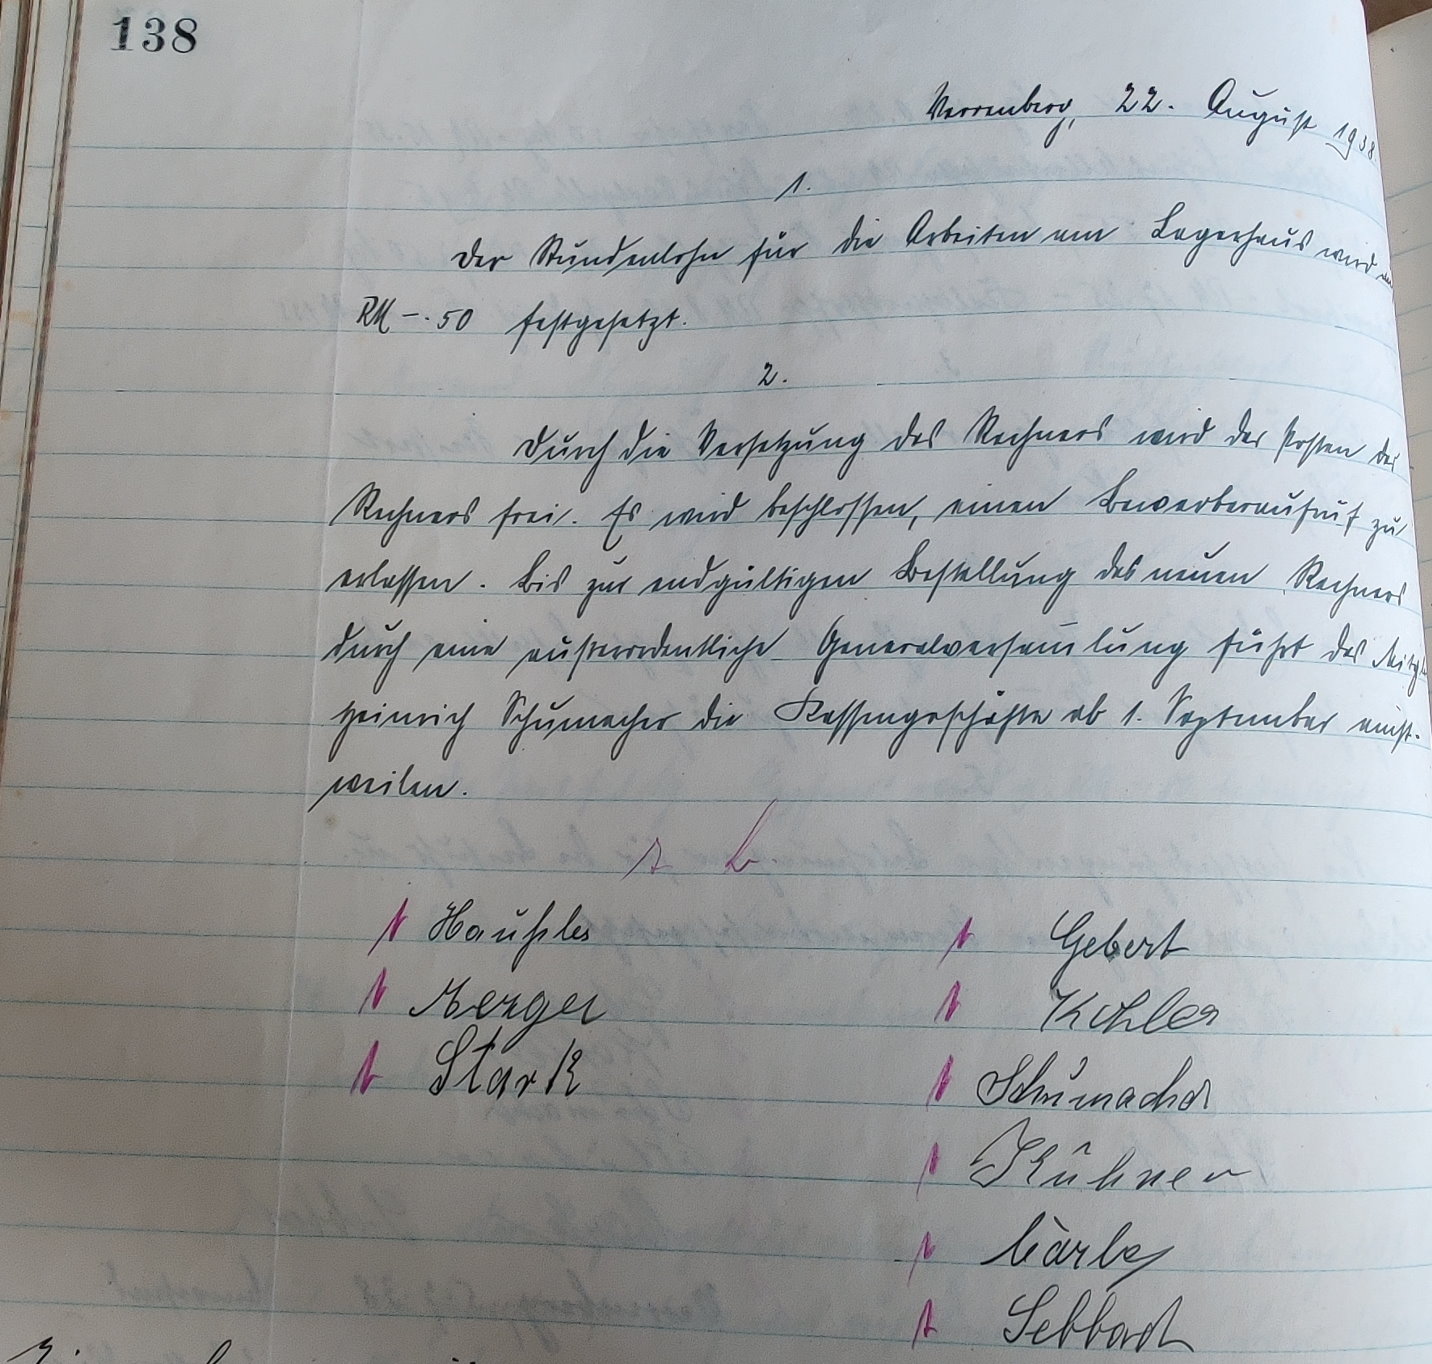 138
Verrenberg, 22. August 1938.
1.
Der Stundenlohn für die Arbeiten am Lagerhaus wird
RM -.50 festgesetzt.
2.
Durch die Versetzung des Rechners wird der Posten des
Rechners frei. Es wird beschlossen, einen Bewerberaufruf zu
erlassen. Bis zur endgültigen Bestellung des neuen Rechners
durch eine außerordentliche Generalversam̅lung führt das
Heinrich Schumacher die Kassengeschäfte ab 1. September einst-
weilen.
Gebert
Kohler
Stark
Schumacher
Kühner